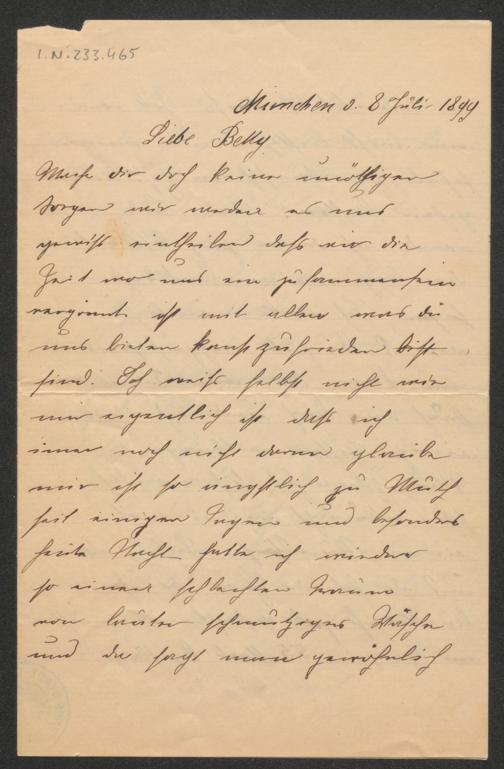 I.N. 233.465
München d. 8 Juli 1899
Liebe Betty
Mache dir doch keine unöthigen
Sorgen wir werden es uns
gewiß eintheilen daß wir die
Zeit wo uns ein zusammensein
vergönnt ist mit allen was du
uns bieten kanst zufrieden bist
sind. Ich weiß selbst nicht wie
mir eigentlich ist daß ich
imer noch nicht daran glaube
mir ist so ängstlich zu Muth
seit einigen Tagen und besonders
heute Nacht hatte ich wieder
so einen schlechten Traum
von lauter schmutziger Wäsche
und da sagt man gewöhnlich